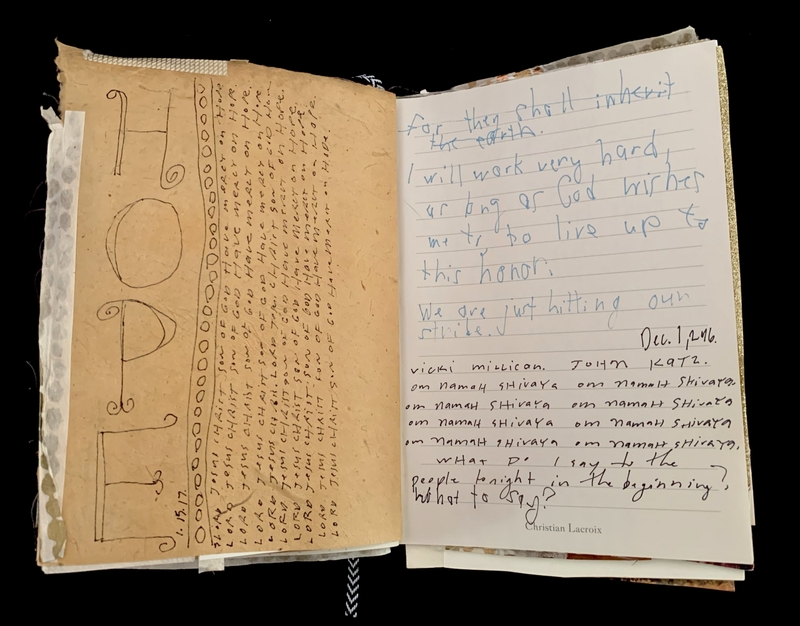 HOPE
1.15.17.
LORD JESUS CHRIST SON OF GOD HAVE MERCY ON HOPE
LORD JESUS CHRIST SON OF GOD HAVE MERCY ON HOPE
LORD JESUS CHRIST SON OF GOD HAVE MERCY ON HOPE.
LORD JESUS CHRIST SON OF GOD HAVE MERCY ON HOPE
LORD JESUS CHRIST. LORD JESUS CHRIST SON OF GOD
LORD JESUS CHRIST SON OF GOD HAVE MERCY ON HOPE.
LORD JESUS CHRIST SON OF GOD HAVE MERCY ON HOPE.
LORD JESUS CHRIST SON OF GOD HAVE MERCY ON HOPE
LORD JESUS CHRIST SON OF GOD HAVE MERCY ON HOPE.
LORD JESUS CHRIST SON OF GOD HAVE MERCY ON HOPE.
For they shall inherit
the earth.
I will work very hard,
as long as God wishes
me to, to live up to
this honor.
We are just hitting our
stride.
Dec. 1, 2016.
vicki millican. JOHN KATZ.
om namaH SHivaya om namaH SHivaya.
om namaH SHivaya om namaH SHivaya
om namaH SHivaya om namaH SHivaya
om namaH SHivaya om namaH SHivaya.
WHAT Do I say to the
people tonight in the beginning?
What to say?
Christian Lacroix